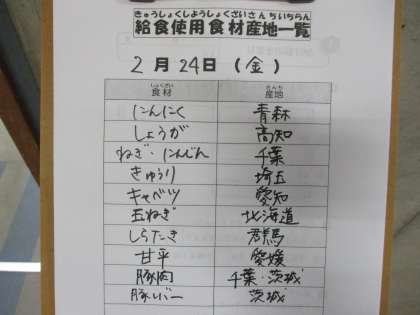 きゅうしょくしようしょくざいさんちいちらん
給食使用食材産地一覧
2月24日(金)
しょくざい さんち
食材 産地
にんにく 青森
しょうが 高知
ねぎ・にんじん 千葉
きゅうり 埼玉
キャベツ 愛知
玉ねぎ 北海道
しらたき 群馬
甘平 愛媛
豚肉 千葉・茨城
豚レバー 茨城